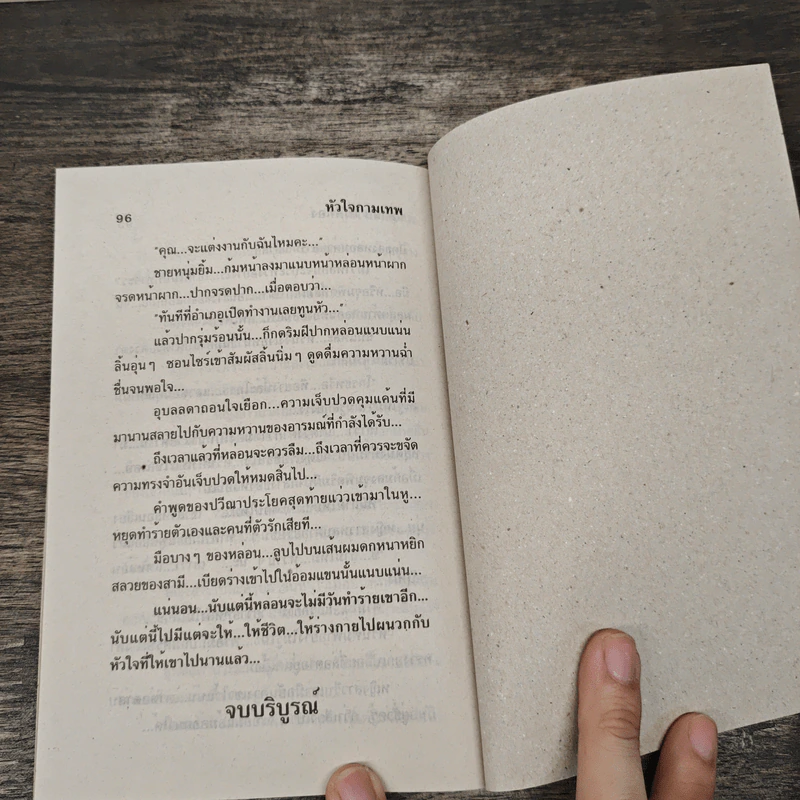 96
หัวใจกามเทพ
"คุณ...จะแต่งงานกับฉันไหมคะ..."
ชายหนุ่มยิ้ม...ก้มหน้าลงมาแนบหน้าหล่อนหน้าผาก
จรดหน้าผาก...ปากจรดปาก...เมื่อตอบว่า...
"ทันทีที่อำเภอเปิดทำงานเลยทูนหัว..."
แล้วปากรุ่มร้อนนั้น...ก็กดริมฝีปากหล่อนแนบแน่น
ลิ้นอุ่นๆ ซอนไซร้เข้าสัมผัสลิ้นนิ่มๆ ดูดดื่มความหวานฉ่ำ
ชื่นจนพอใจ...
อุบลลดาถอนใจเยือก...ความเจ็บปวดคุมแค้นที่มี
มานานสลายไปกับความหวานของอารมณ์ที่กำลังได้รับ...
ถึงเวลาแล้วที่หล่อนจะควรลืม...ถึงเวลาที่ควรจะขจัด
ความทรงจำอันเจ็บปวดให้หมดสิ้นไป...
คำพูดของปวีณาประโยคสุดท้ายแว่วเข้ามาในหู...
หยุดทำร้ายตัวเองและคนที่ตัวรักเสียที...
มือบางๆ ของหล่อน...ลูบไปบนเส้นผมดกหนาหยิก
สลวยของสามี...เบียดร่างเข้าไปในอ้อมแขนนั้นแนบแน่น...
แน่นอน...นับแต่นี้หล่อนจะไม่มีวันทำร้ายเขาอีก...
นับแต่นี้ไปมีแต่จะให้...ให้ชีวิต...ให้ร่างกายไปผนวกกับ
หัวใจที่ให้เขาไปนานแล้ว...
จบบริบูรณ์